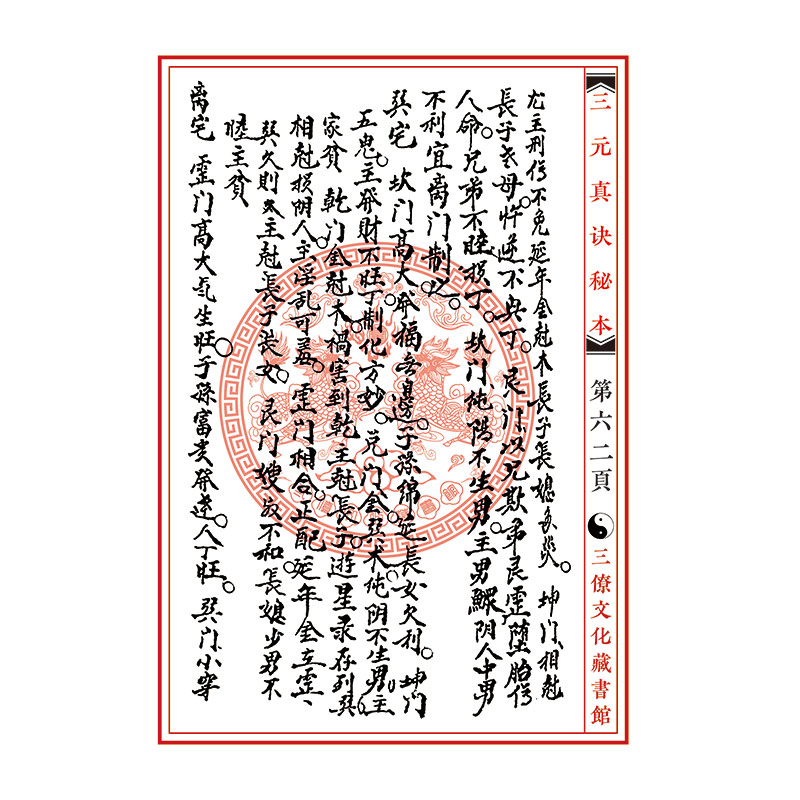 三元真诀秘本
第六二頁
三僚文化藏書館
尤主刑伤不免延年金尅木長子長媳多災。坤门相尅
長子老母忤逆不興丁。艮门以兄欺弟艮震堕胎伤
人命。兄弟不睦损丁。坎门纯陽不生男。主男鰥阴人中男
不利宜离门制之。
巽宅 坎门高大發福无邊。子孫绵延長女欠利。坤门
五鬼。主發財不旺丁制化方妙。兑门金巽木纯阴不生男。主
家貧。乾门金尅木禍害到乾主尅長子。遊星录存到巽
相尅损阴人主淫乱可羞。震门相合正配。延年金立震、
巽久則久主尅長子長女。艮门嫂叔不和。長媳少男不
睦主貧
离宅 震门高大气生旺。子孫富贵發达。人丁旺。巽门小穿